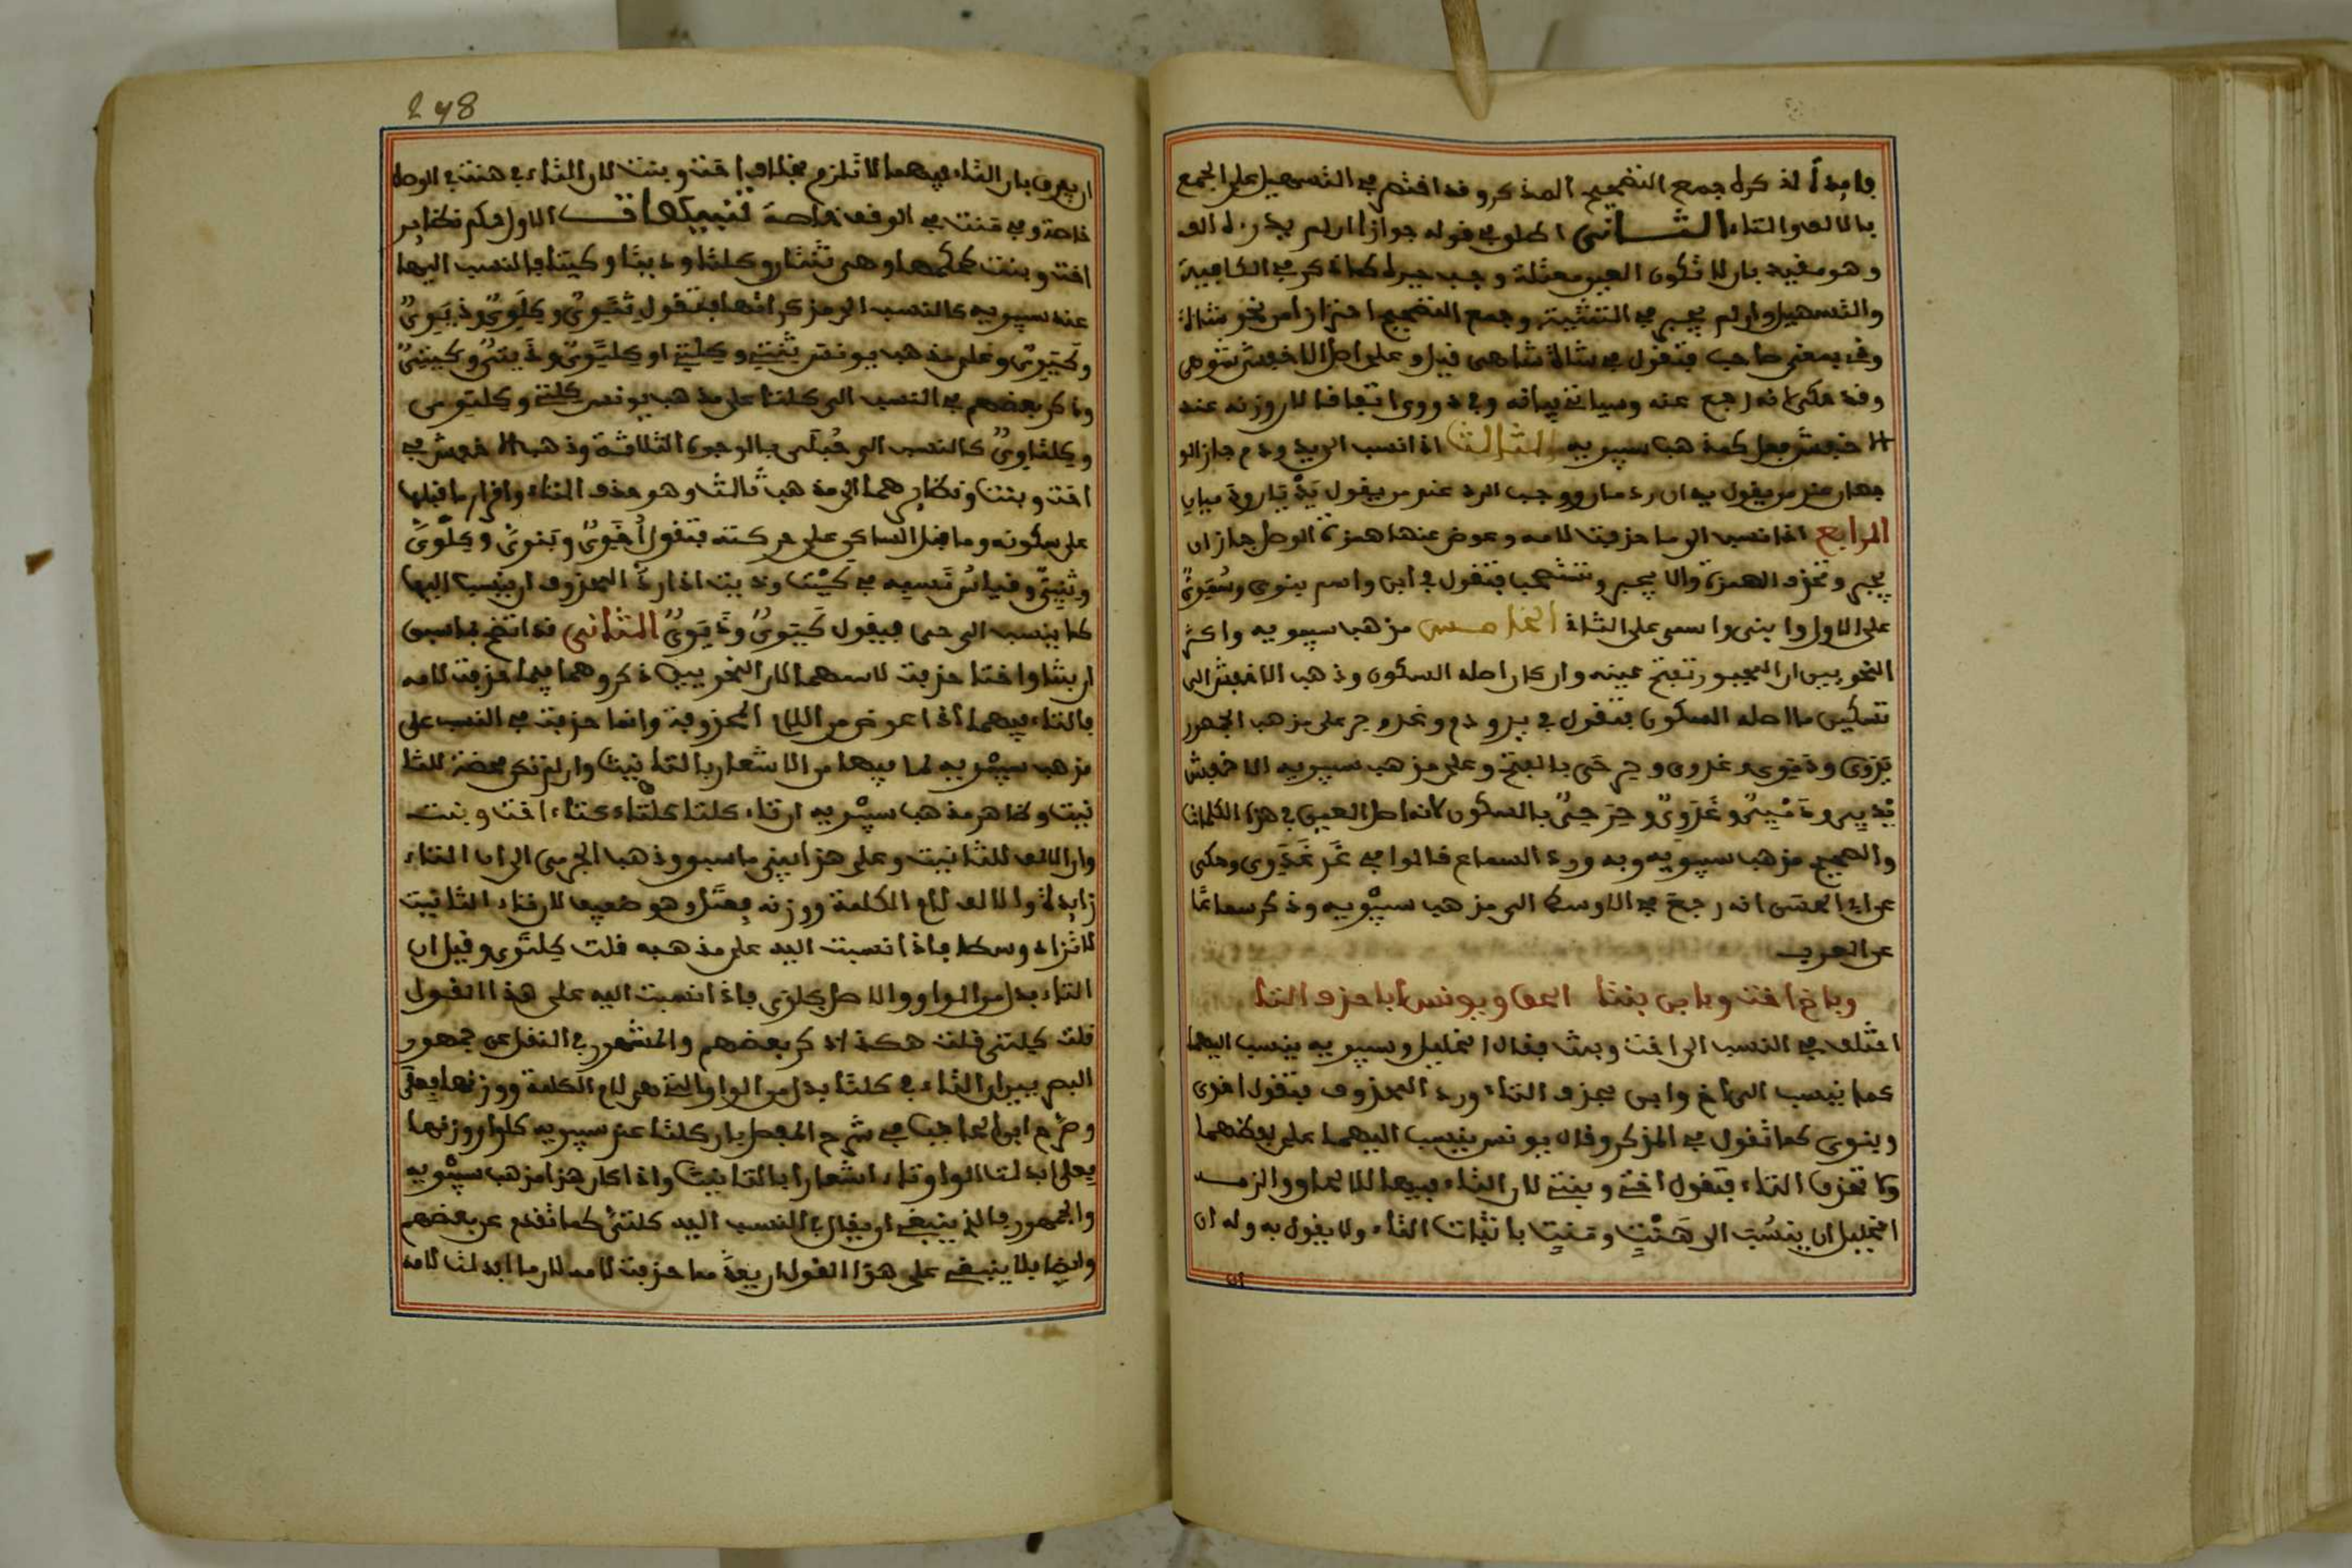 فايدة لذكر جمع التصحيح المذكر وقد اقتصر في التسهيل على الجمع
بالالف والتاء الثاني اطلق في قوله جوازا ان لم يك رده الف
وهو مقيد بان لا تكون العين معتلة وجب جبره كما ذكر في الكافية
والتسهيل وان لم يجبر في التثنية وجمع التصحيح احترازا من نحو شاة
وذي بمعنى صاحب فتقول في شاة شاهي قيل وعلى اصل الاخفش شوهي
وقد حكى انه رجع عنه وسياتي بيانه وفي ذو ذووي اتفاقا لان وزنه عند
الاخفش فعل كمذهب سيبويه الثالث اذا نسب الى يد ودم جاز الو
جهان عند من يقول يدان ودمان ووجب الرد عند من يقول يديان ودميان
الرابع اذا نسب الى ما حذفت لامه وعوض عنها همزة الوصل جاز ان
يجبر وتحذف الهمزة والا يجبر وتستصحب فتقول في ابن واسم بنوي وسموي
على الاول وابني واسمي على الثاني الخامس مذهب سيبويه واكثر
النحويين ان المجبور تفتح عينه وان كان اصله السكون وذهب الاخفش الى
تسكين ما اصله السكون فتقول في يد ودم وغد وحر على مذهب الجمهور
يدوي ودموي وغدوي وحرحي بالفتح وعلى مذهب سيبويه الاخفش
يديي ودميي وغدوي وحرحي بالسكون لانه اصل العين في هذه الكلمات
والصحيح مذهب سيبويه وبه ورد السماع قالوا في غد غدوي وحكى
عن ابي الحسن انه رجع في الاوسط الى مذهب سيبويه وذكر سماعا
عن العرب
وباخ اختا وبابن بنتا الحق ويونس ابى حذف التا
اختلف في النسب الى اخت وبنت فقال الخليل وسيبويه ينسب اليهما
كما ينسب الى اخ وابن بحذف التاء ورد المحذوف فتقول اخوي
وبنوي كما تقول في المذكر وقال يونس ينسب اليهما على لفظهما
ولا تحذف التاء فتقول اختي وبنتي لان التاء فيهما للالحاق والزمه
الخليل ان ينسب الى هنت ومنت باثبات التاء ولا يقول به وله ان
ان
248
ان يفرق بان التاء فيهما لا تلزم بخلاف اخت وبنت لان التاء في هنت في الوصل
خاصة وفي منت في الوقف خاصة تنبيهات الاول حكم نظاير
اخت وبنت حكمهما وهي ثنتان وكلتا وذيت وكيت فالنسب اليها
عند سيبويه كالنسب الى مذكراتها فتقول ثنوي وكلوي وذيوي
وكيوي وعلى مذهب يونس ثنتي وكلتي او كلتوي وذيتي وكيتي
وذكر بعضهم في النسب الى كلتا على مذهب يونس كلتي وكلتوي
وكلتاوي كالنسب الى حبلى بالوجوه الثلاثة وذهب الاخفش في
اخت وبنت ونظايرهما الى مذهب ثالث وهو حذف التاء واقرار ما قبلها
على سكونه وما قبل الساكن على حركته فتقول اخوي وبنوي وكلوي
وثنيي وقياس مذهبه في كيت وذيت اذا رد المحذوف ان ينسب اليها
كما ينسب الى حي فيقول كيوي وذيوي الثاني قد اتضح بما سبق
ان بنتا واختا حذفت لامهما لان النحويين ذكروهما فيما حذفت لامه
بالتاء فيهما اذا عوض من اللام المحذوفة وانما حذفت في النسب على
مذهب سيبويه لما فيهما من الاشعار بالتانيث وان لم تكن محضة للتا
نيث وظاهر مذهب سيبويه ان تاء كلتا كتاء اخت وبنت
وان الالف للتانيث وعلى هذا ينبني ما سبق وذهب الجرمي الى ان التاء
زايدة والالف لام الكلمة ووزنه فعتل وهو ضعيف لان تاء التانيث
لا تزاد وسطا فاذا نسبت اليه على مذهبه قلت كلتوي وقيل ان
التاء بدل من الواو والاصل كلوى فاذا نسبت اليه على هذا القول
قلت كلتي قلت هكذا ذكر بعضهم والمشهور في النقل عن جمهور
البصريين ان التاء في كلتا بدل من الواو التي هي لام الكلمة ووزنها فعلى
وصرح ابن الحاجب في شرح المفصل بان كلتا عند سيبويه كلوا ووزنها
فعلى ابدلت الواو تاء اشعارا بالتانيث واذا كان هذا مذهب سيبويه
والجمهور فالذي ينبغي ان يقال في النسب اليه كلتي كما تقدم عن بعضهم
وايضا فلا ينبغي على هذا القول ان يعد مما حذفت لامه لان ما ابدلت لامه